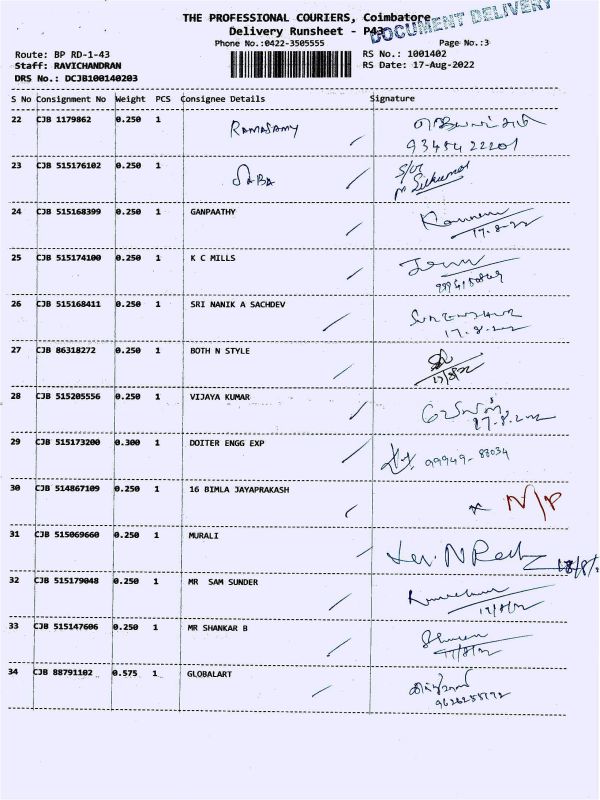 THE PROFESSIONAL COURIERS, Coimbatore
DOCUMENT DELIVERY
Delivery Runsheet - P43
Phone No.:0422-3505555
Page No.:3
Route: BP RD-1-43
RS No.: 1001402
Staff: RAVICHANDRAN
RS Date: 17-Aug-2022
DRS No.: DCJB100140203
S No Consignment No Weight PCS Consignee Details Signature
22 CJB 1179862 0.250 1 RAMASAMY
93454 22201
23 CJB 515176102 0.250 1 SABA
Sukumar
24 CJB 515168399 0.250 1 GANPAATHY
17-8-22
25 CJB 515174100 0.250 1 K C MILLS
26 CJB 515168411 0.250 1 SRI NANIK A SACHDEV
17.8.22
27 CJB 86318272 0.250 1 BOTH N STYLE
17/8/22
28 CJB 515205556 0.250 1 VIJAYA KUMAR
17.8.22
29 CJB 515173200 0.300 1 DOITER ENGG EXP 99949-88034
30 CJB 514867109 0.250 1 16 BIMLA JAYAPRAKASH N/P
31 CJB 515069660 0.250 1 MURALI
32 CJB 515179048 0.250 1 MR SAM SUNDER
17/8/22
33 CJB 515147606 0.250 1 MR SHANKAR B
17/8/22
34 CJB 88791102 0.575 1 GLOBALART